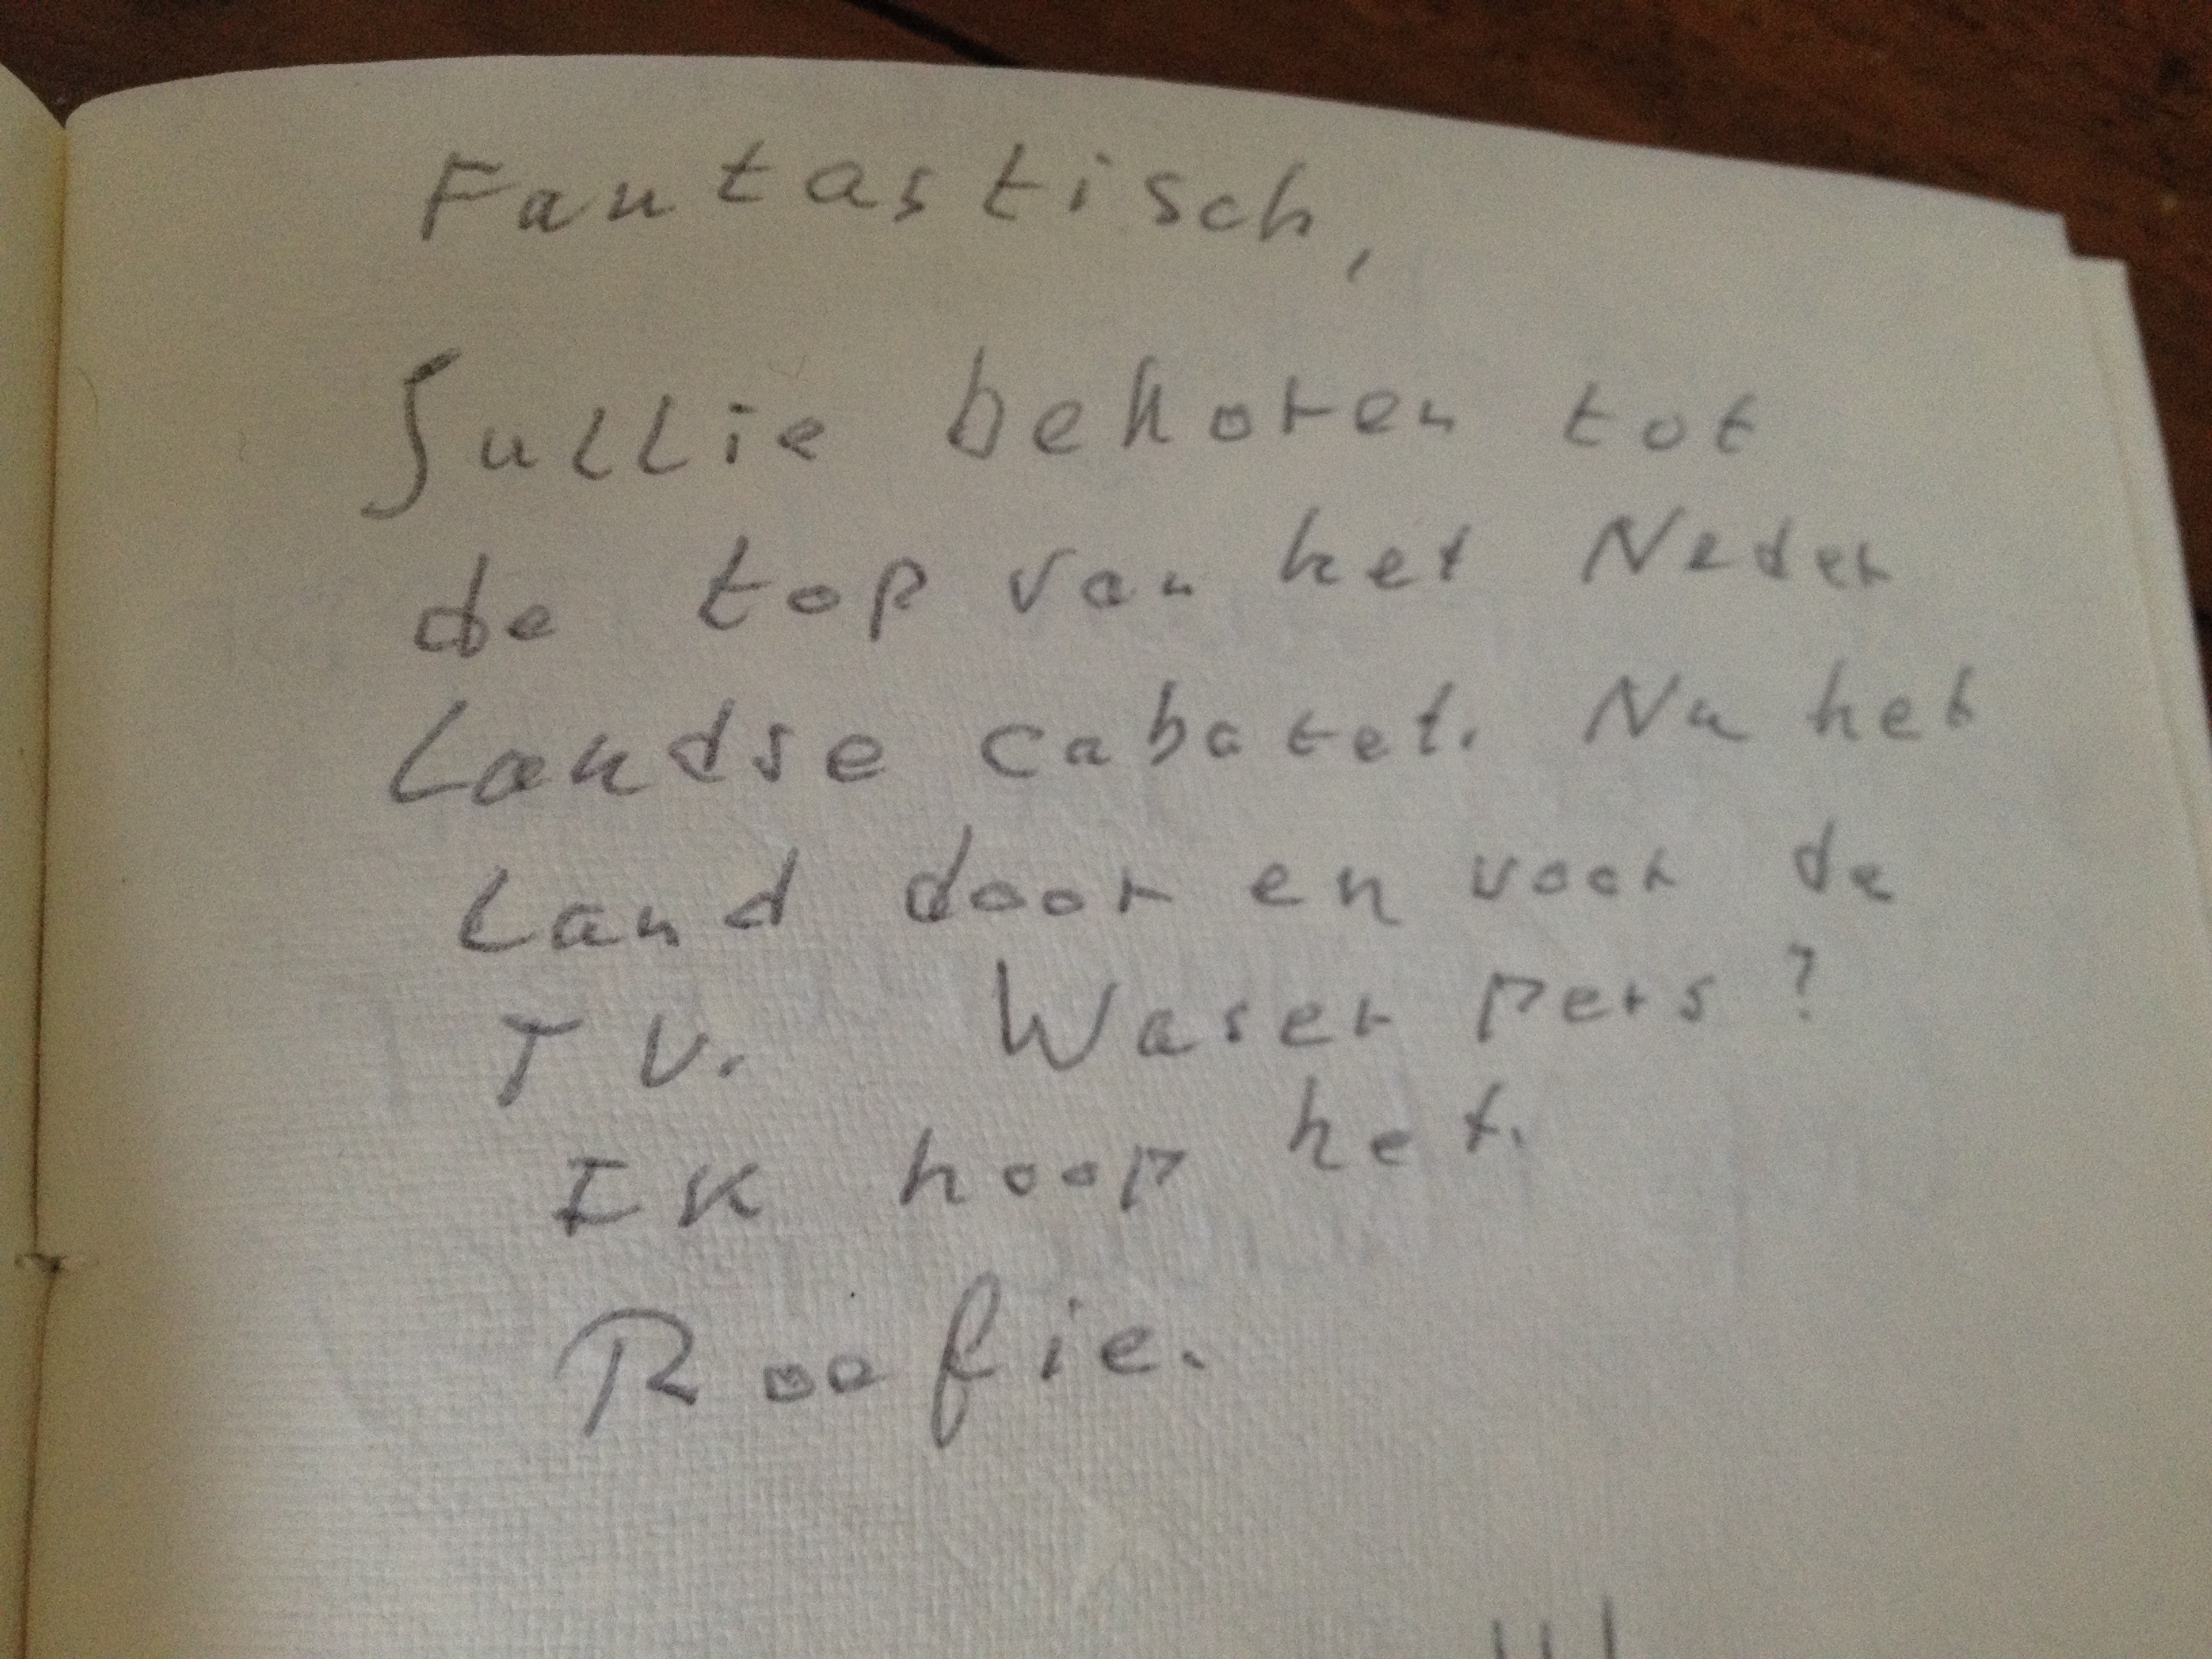 Fantastisch,
Jullie behoren tot
de top van het Neder
Landse cabaret. Nu het
Land door en voor de
TV. Was er pers?
Ik hoop het.
Roofie.